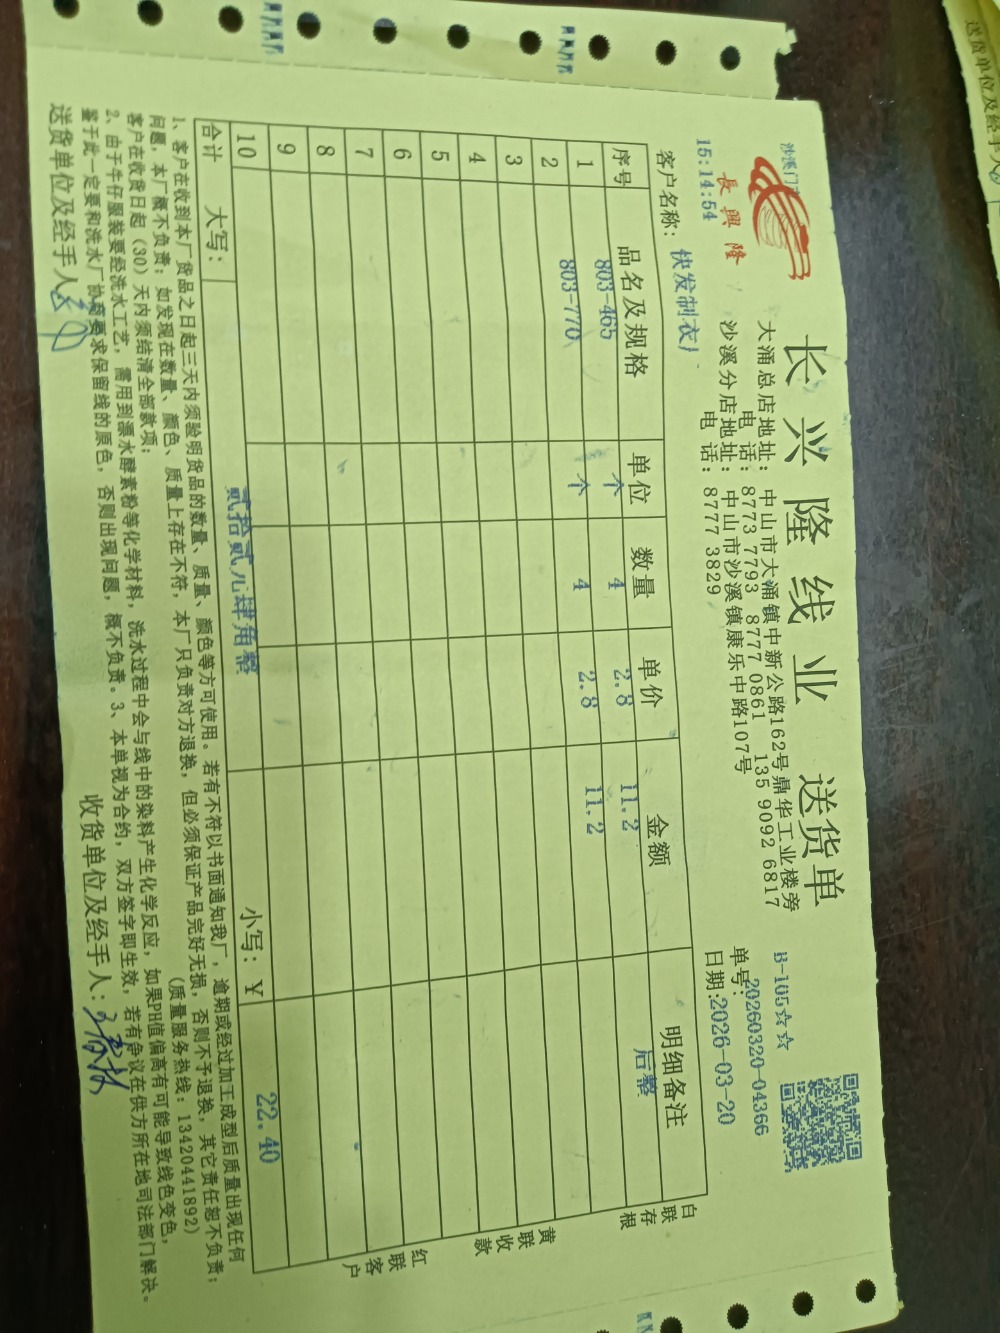 沙溪门
長興隆
15:14:54
长兴隆线业 送货单
大涌总店地址：中山市大涌镇中新公路162号鼎华工业楼旁
电话：8773 7793 8777 0861 135 9092 6817
沙溪分店地址：中山市沙溪镇康乐中路107号
电话：8777 3829
B-105☆☆
单号：20260320-04366
日期：2026-03-20
客户名称：快发制衣厂
序号 品名及规格 单位 数量 单价 金额 明细备注
1 803-465 个 4 2.8 11.2 后整
2 803-770 个 4 2.8 11.2
3
4
5
6
7
8
9
10
合计 大写：贰拾贰元肆角整 小写：￥ 22.40
白联存根
黄联收款
红联客户
1、客户在收到本厂货品之日起三天内须验明货品的数量、质量、颜色等方可使用。若有不符以书面通知我厂，逾期或经过加工成型后质量出现任何
问题，本厂概不负责；如发现在数量、颜色、质量上存在不符，本厂只负责对方退换，但必须保证产品完好无损，否则不予退换，其它责任恕不负责；
客户在收货日起（30）天内须结清全部款项；（质量服务热线：13420441892）
2、由于牛仔服装要经洗水工艺，需用到漂水酵素粉等化学材料，洗水过程中会与线中的染料产生化学反应，如果PH值偏高有可能导致线色变色，
鉴于此一定要和洗水厂协商要求保留线的原色，否则出现问题，概不负责。3、本单视为合约，双方签字即生效，若有争议在供方所在地司法部门解决。
送货单位及经手人：
收货单位及经手人：
送货单位及经手人